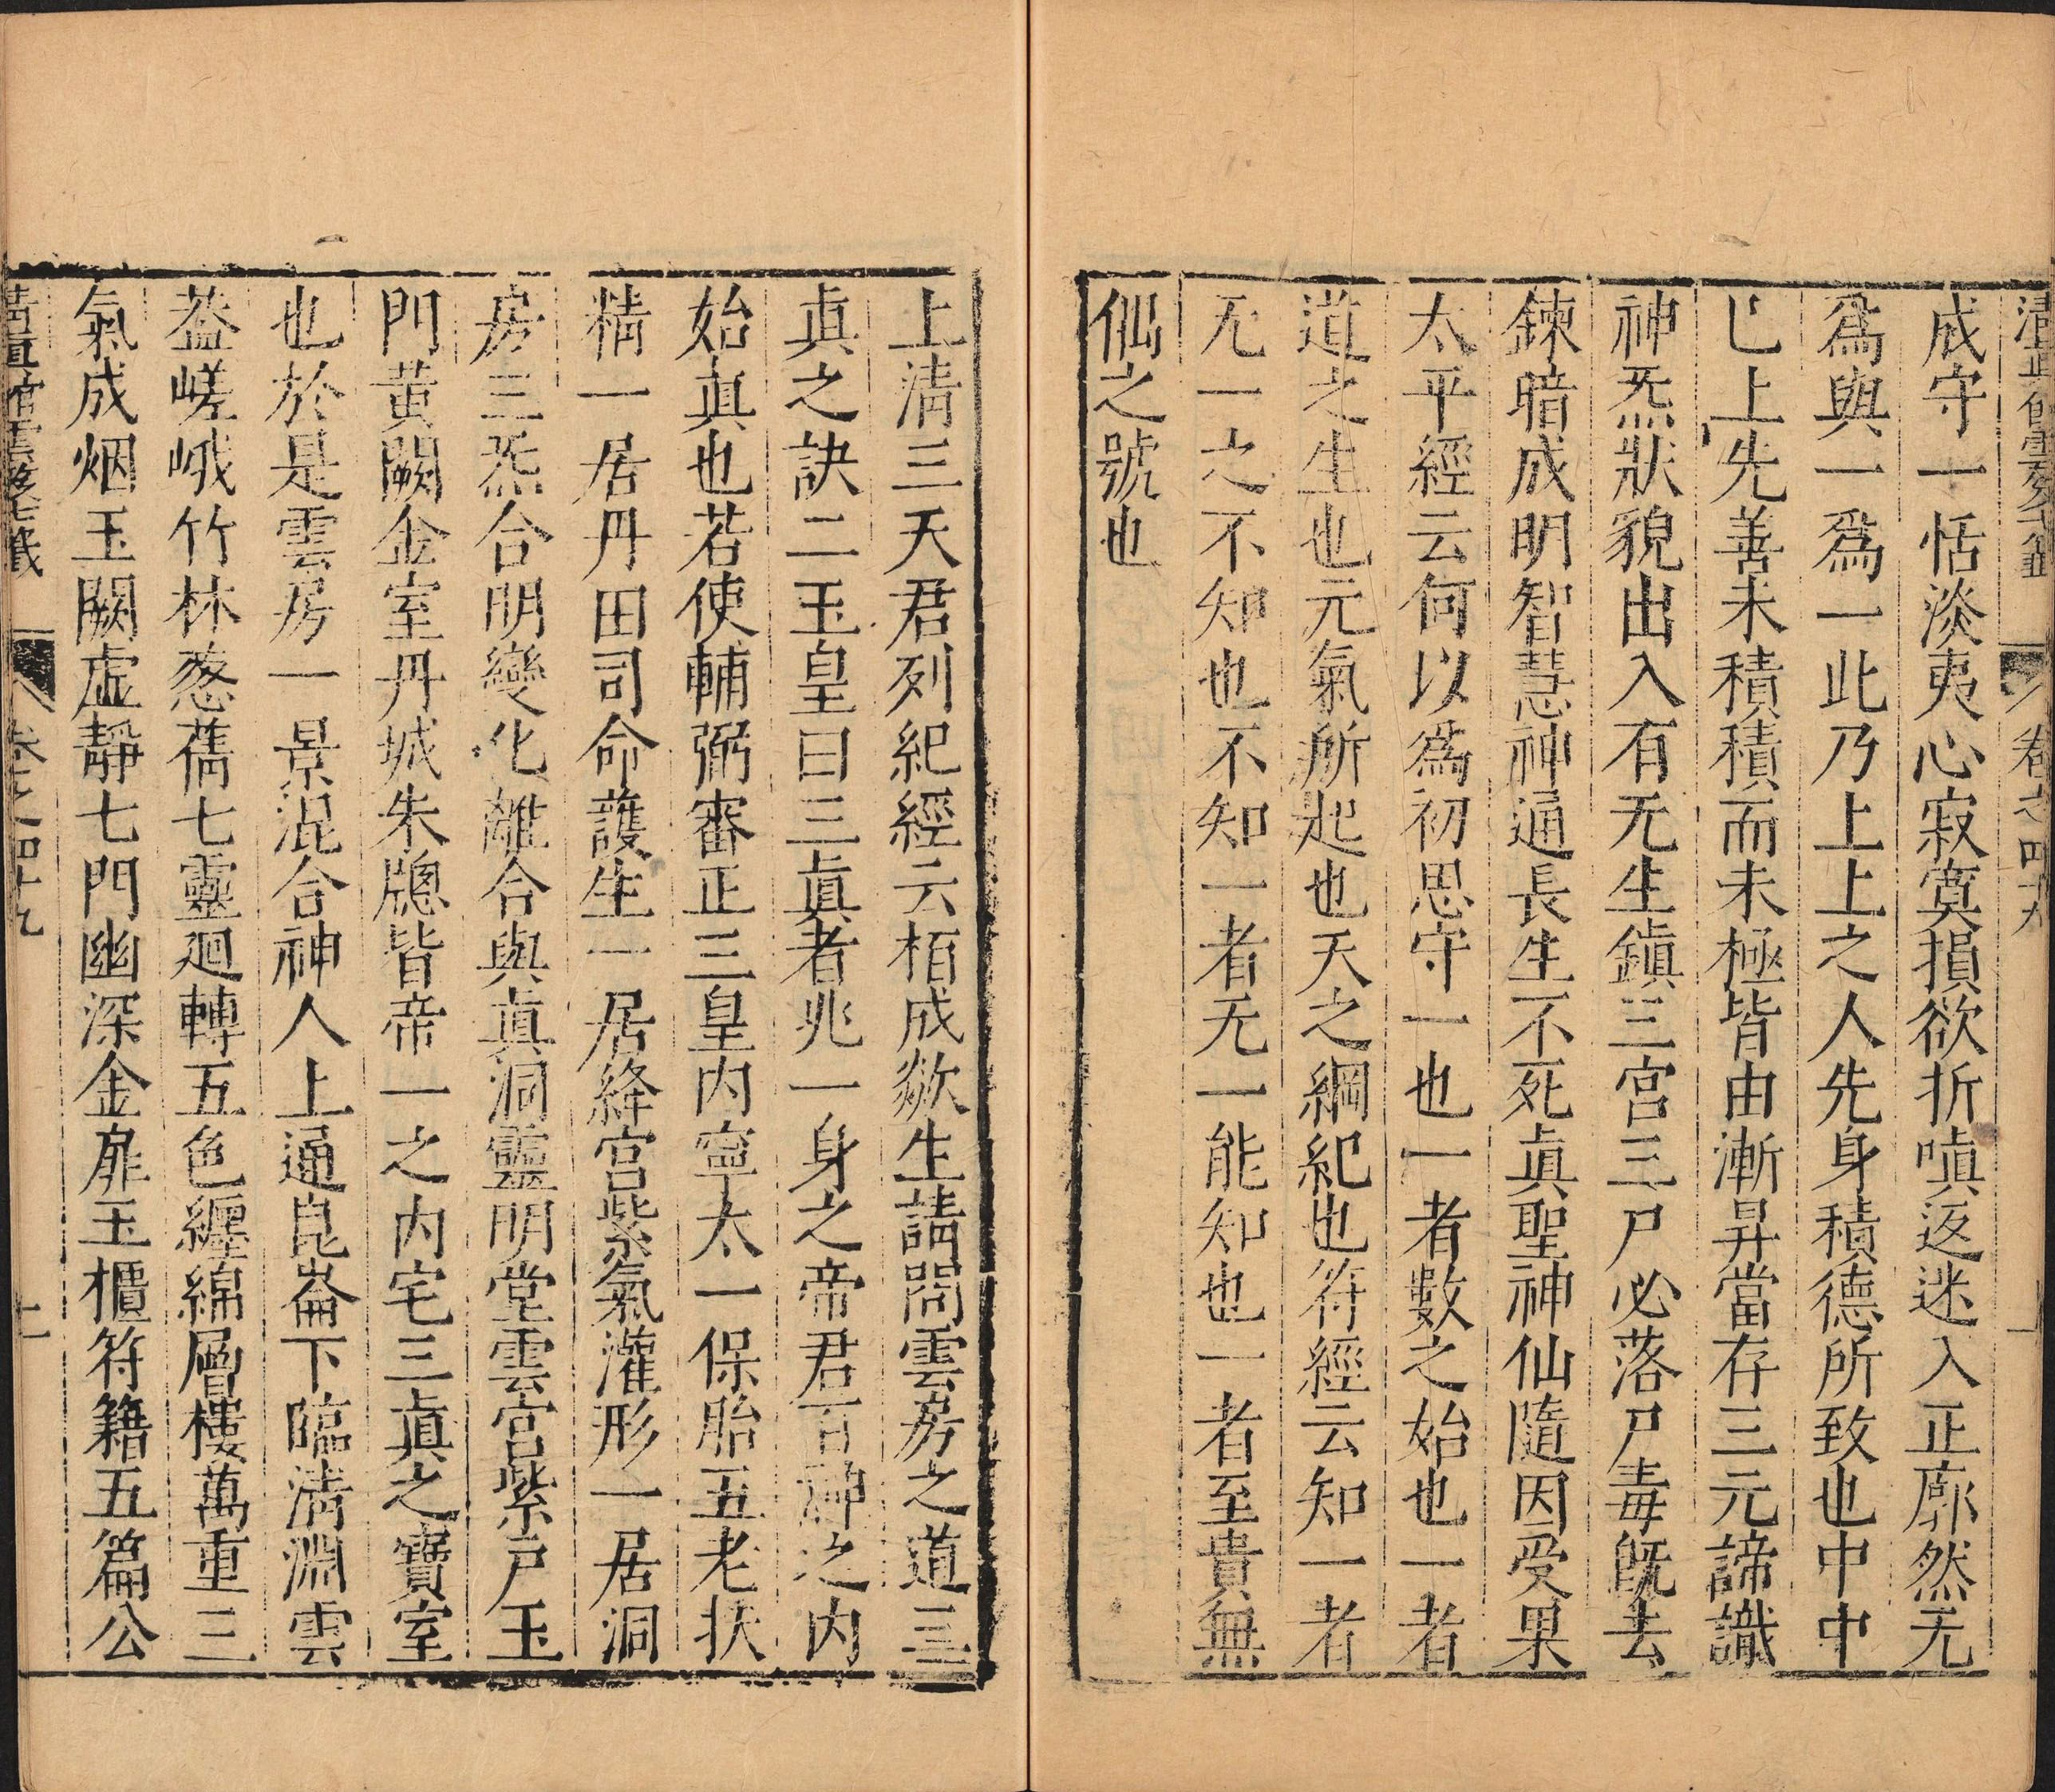 卷之四十九 一
成守一恬淡夷心寂寞損欲折嗔返迷入正廓然无
爲與一爲一此乃上上之人先身積德所致也中中
已上先善未積積而未極皆由漸昇當存三元諦識
神炁狀貌出入有无生鎮三宮三尸必落尸毒旣去
鍊暗成明智慧神通長生不死眞聖神仙隨因受果
太平經云何以爲初思守一也一者數之始也一者
道之生也元氣所起也天之綱紀也符經云知一者
无一之不知也不知一者无一能知也一者至貴無
仙之號也
上清三天君列紀經云栢成欻生請問雲房之道三
眞之訣二玉皇曰三眞者兆一身之帝君百神之內
始眞也若使輔弼審正三皇內寧太一保胎五老扶
精一居丹田司命護生一居絳宮紫氣灌形一居洞
房三炁合明變化離合與眞洞靈明堂雲宮紫戶玉
門黃闕金室丹城朱牕皆帝一之內宅三眞之寶室
也於是雲房一景混合神人上通崑崙下臨淸淵雲
葢嵯峨竹林葱蒨七靈廻轉五色纒綿層樓萬重三
氣成烟玉闕虛靜七門幽深金扉玉櫃符籍五篇公
清眞館雲笈七籤 卷之四十九 二